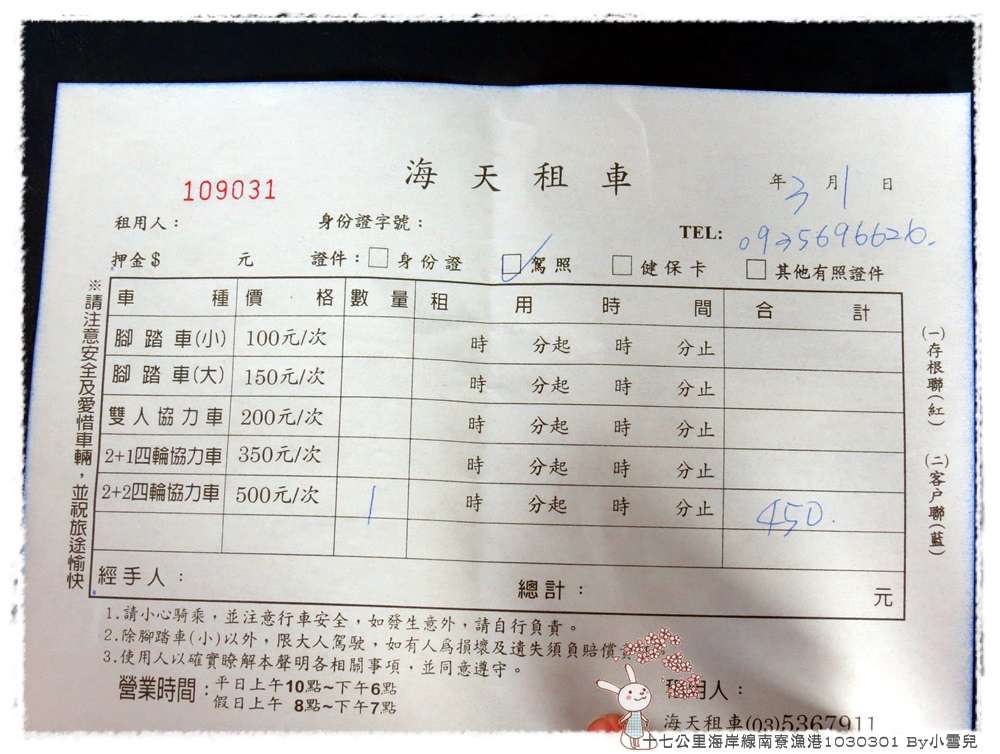 海天租車
109031
年3月1日
租用人： 身份證字號： TEL: 0935696626.
押金$ 元 證件：□身份證 ☑駕照 □健保卡 □其他有照證件
車種 價格 數量 租用時間 合計
腳踏車(小) 100元/次 時 分起 時 分止
腳踏車(大) 150元/次 時 分起 時 分止
雙人協力車 200元/次 時 分起 時 分止
2+1四輪協力車 350元/次 時 分起 時 分止
2+2四輪協力車 500元/次 1 時 分起 時 分止 450.
經手人： 總計： 元
※請注意安全及愛惜車輛，並祝旅途愉快
(一)存根聯(紅)
(二)客戶聯(藍)
1.請小心騎乘，並注意行車安全，如發生意外，請自行負責。
2.除腳踏車(小)以外，限大人駕駛，如有人為損壞及遺失須負賠償
3.使用人以確實瞭解本聲明各相關事項，並同意遵守。
營業時間：平日上午10點~下午6點
假日上午 8點~下午7點
租用人：
海天租車(03)5367911
十七公里海岸線南寮漁港1030301 By小雪兒